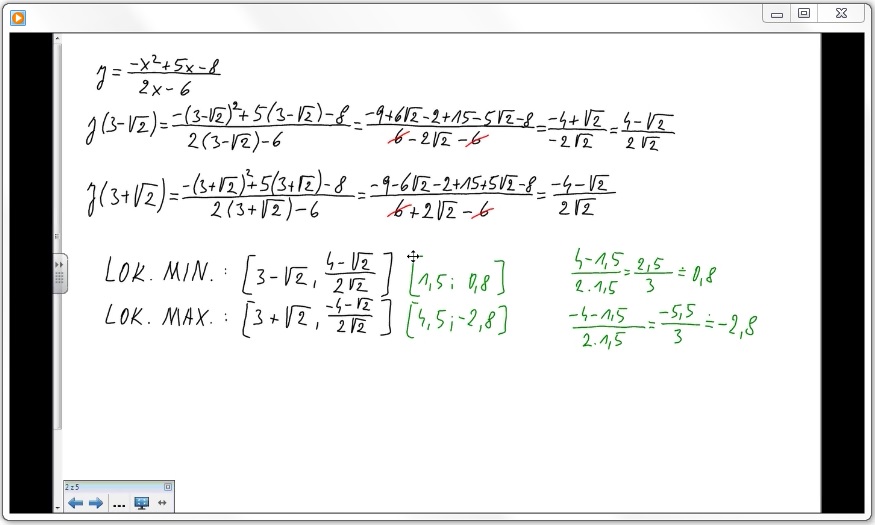 y = (-x²+5x-8)/(2x-6)
y(3-√2) = (-(3-√2)²+5(3-√2)-8)/(2(3-√2)-6) = (-9+6√2-2+15-5√2-8)/(6-2√2-6) = (-4+√2)/(-2√2) = (4-√2)/(2√2)
y(3+√2) = (-(3+√2)²+5(3+√2)-8)/(2(3+√2)-6) = (-9-6√2-2+15+5√2-8)/(6+2√2-6) = (-4-√2)/(2√2)
LOK. MIN. : [3-√2, (4-√2)/(2√2)] [1,5; 0,8] (4-1,5)/(2·1,5) = 2,5/3 ≐ 0,8
LOK. MAX. : [3+√2, (-4-√2)/(2√2)] [4,5; -2,8] (-4-1,5)/(2·1,5) = -5,5/3 ≐ -2,8
2 z 5